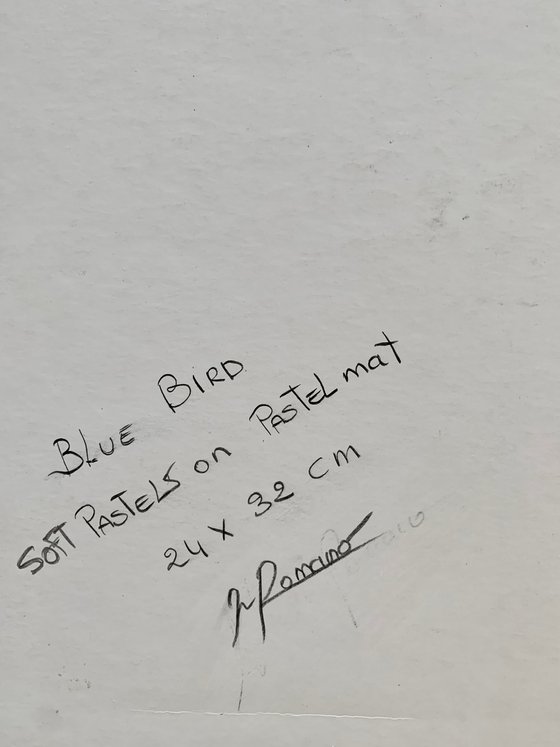 BLUE BIRD
SOFT PASTELS on PASTEL mat
24 x 32 cm